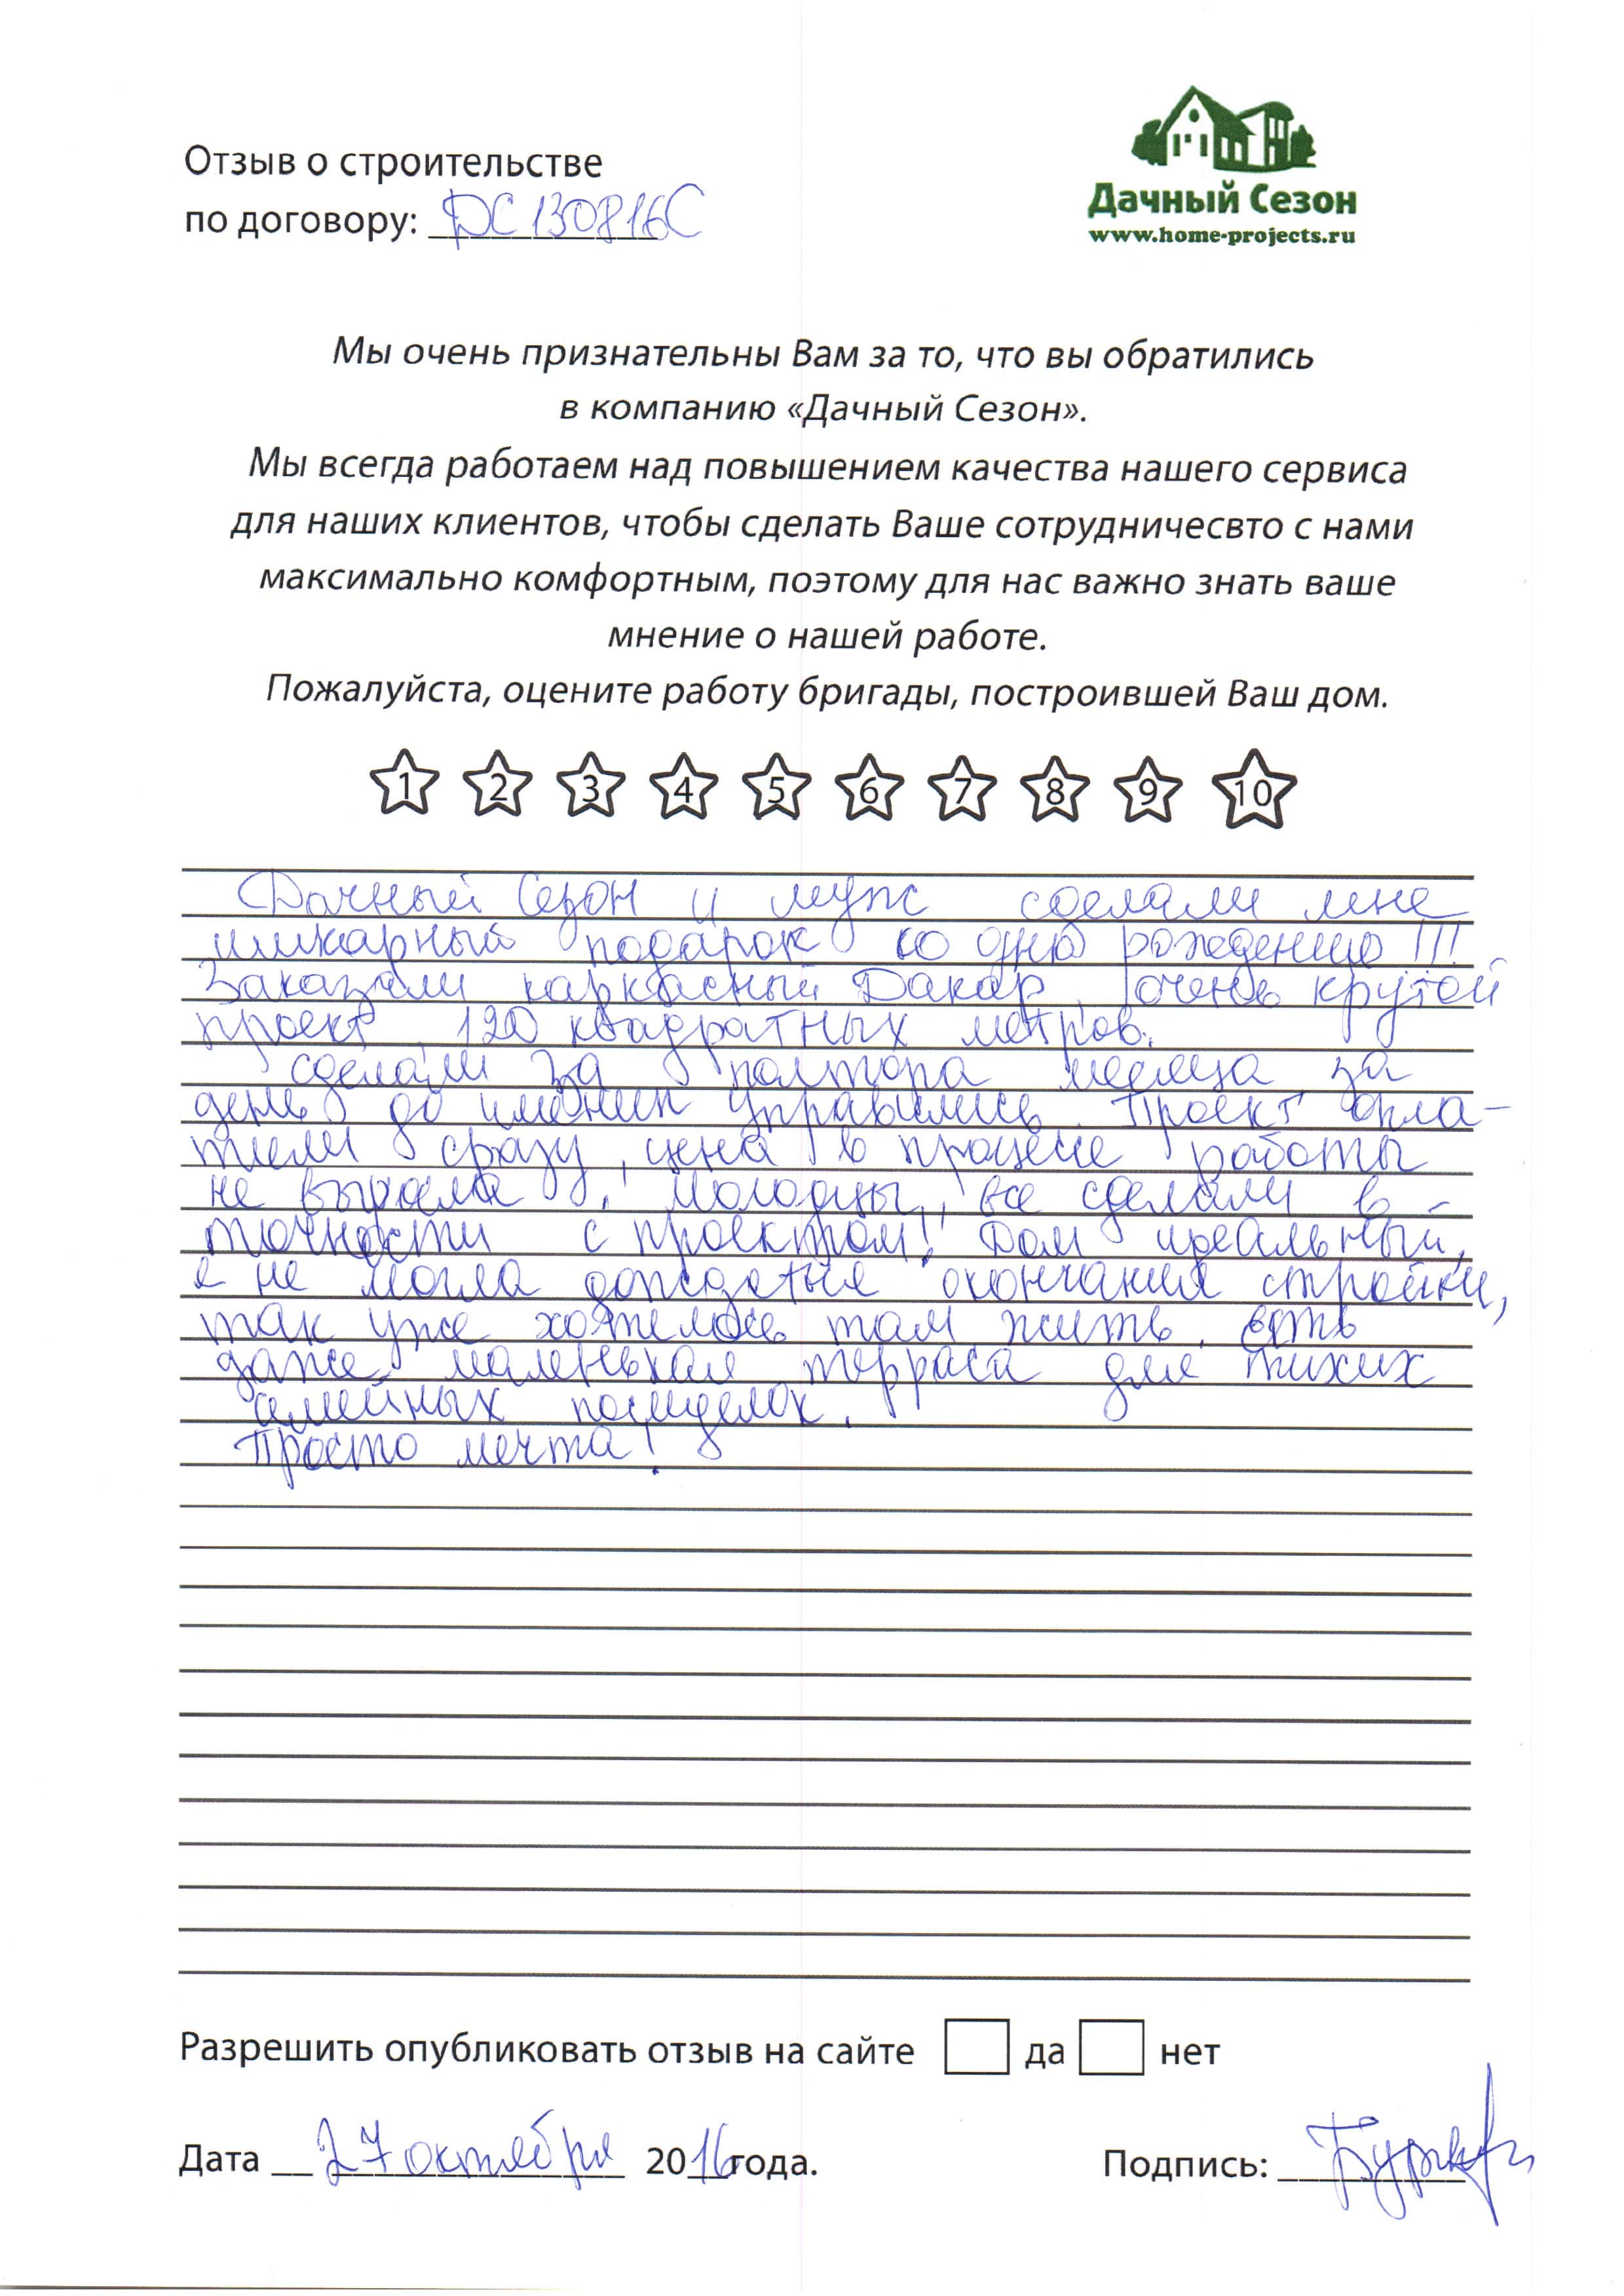 Отзыв о строительстве
по договору: ДС130816С
Дачный Сезон
www.home-projects.ru
Мы очень признательны Вам за то, что вы обратились
в компанию «Дачный Сезон».
Мы всегда работаем над повышением качества нашего сервиса
для наших клиентов, чтобы сделать Ваше сотрудничесвто с нами
максимально комфортным, поэтому для нас важно знать ваше
мнение о нашей работе.
Пожалуйста, оцените работу бригады, построившей Ваш дом.
1 2 3 4 5 6 7 8 9 10
Дачный Сезон и муж сделали мне
шикарный подарок ко дню рождению!!!
Заказали каркасный Дакар, очень крутой
проект, 120 квадратных метров.
сделали за полтора месяца, за
день до именин управились. Проект опла-
тили сразу, цена в процессе работы
не выросла. Молодцы, все сделали в
точности с проектом! Дом идеальный,
я не могла дождаться окончания стройки,
так уже хотелось там жить. есть
даже маленькая терраса для тихих
семейных посиделок.
Просто мечта!
Разрешить опубликовать отзыв на сайте да нет
Дата 27 октября 2016 года. Подпись: